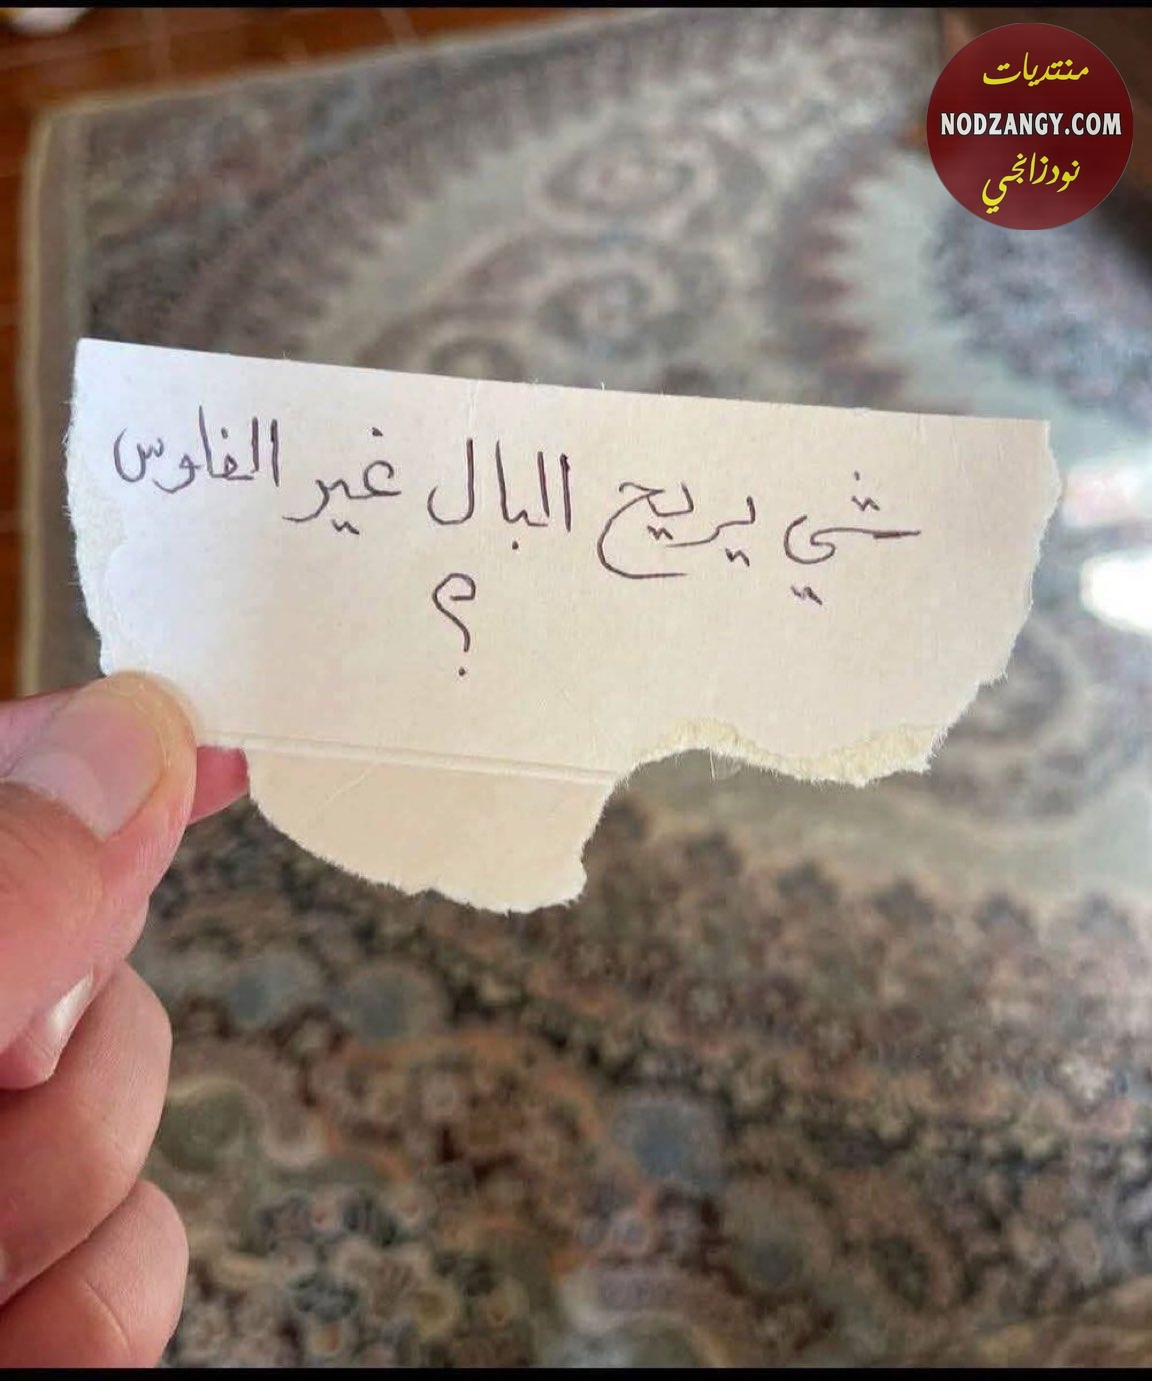 منتديات
NODZANGY.COM
نودزانجي
شي يريح البال غير الفلوس
؟